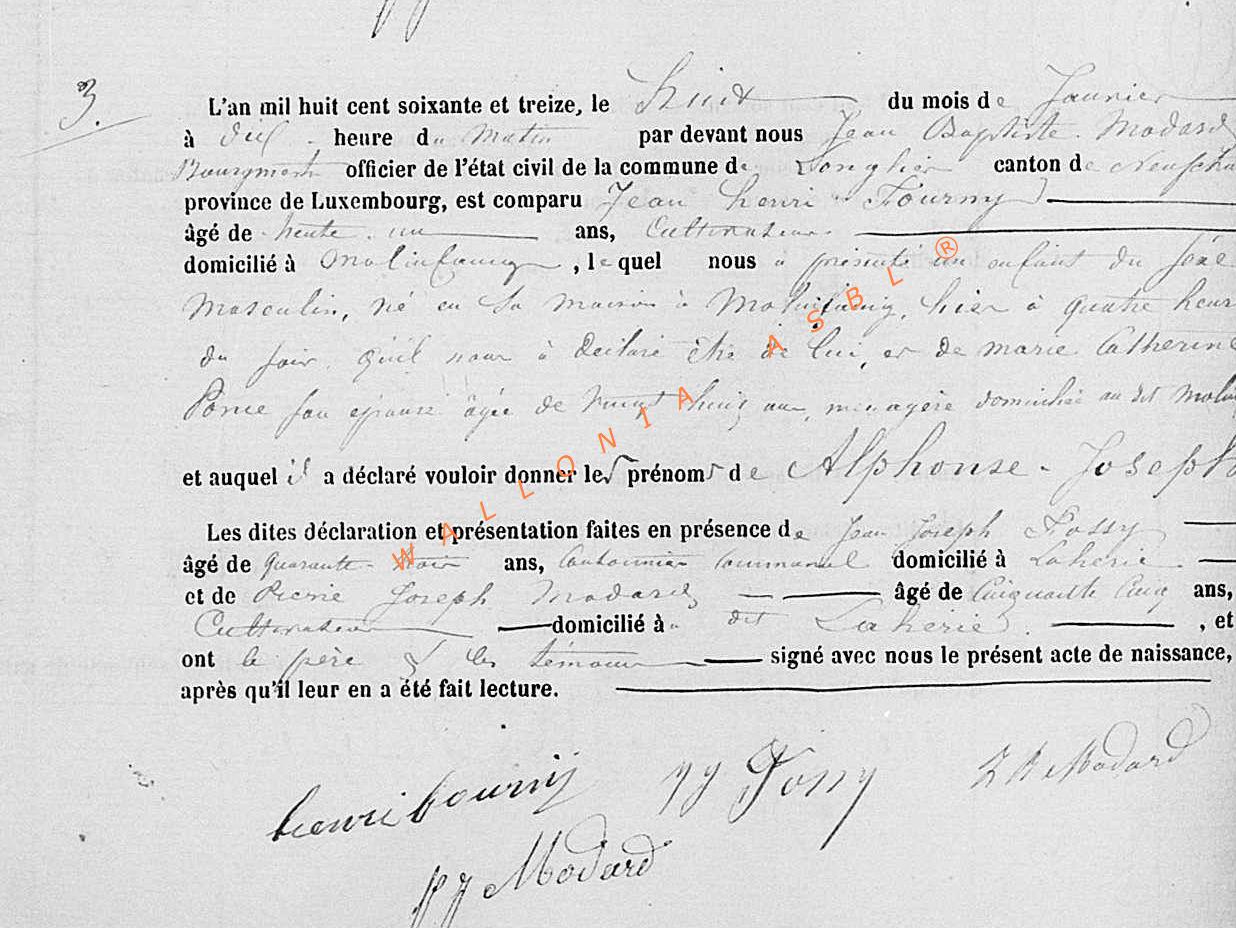 3.
L'an mil huit cent soixante et treize, le huit du mois de Janvier
à dix heure du matin par devant nous Jean Baptiste Modard
Bourgmestre officier de l'état civil de la commune de Longlier canton de Neufcha
province de Luxembourg, est comparu Jean henri Fourny
âgé de trente un ans, Cultivateur
domicilié à Molinfaing, lequel nous a présenté un enfant du sexe
Masculin, né en sa maison à Molinfaing, hier à quatre heur
du soir, qu'il nous à declaré être de lui, et de marie Catherine
Ponce son épouse âgée de vingt huit ans, menagère domiciliée au dit Molin
et auquel il a déclaré vouloir donner les prénoms de Alphonse - Joseph
Les dites déclaration et présentation faites en présence de Jean Joseph Fossy
âgé de quarante-trois ans, Cantonnier Communal domicilié à Laherie
et de Pierre Joseph Modard âgé de Cinquante Cinq ans,
Cultivateur domicilié à dit Laherie, et
ont le père & les témoins signé avec nous le présent acte de naissance,
après qu'il leur en a été fait lecture.
henri fourny JJ Fossy J B Modard
PJ Modard
WALLONIA ASBL ®